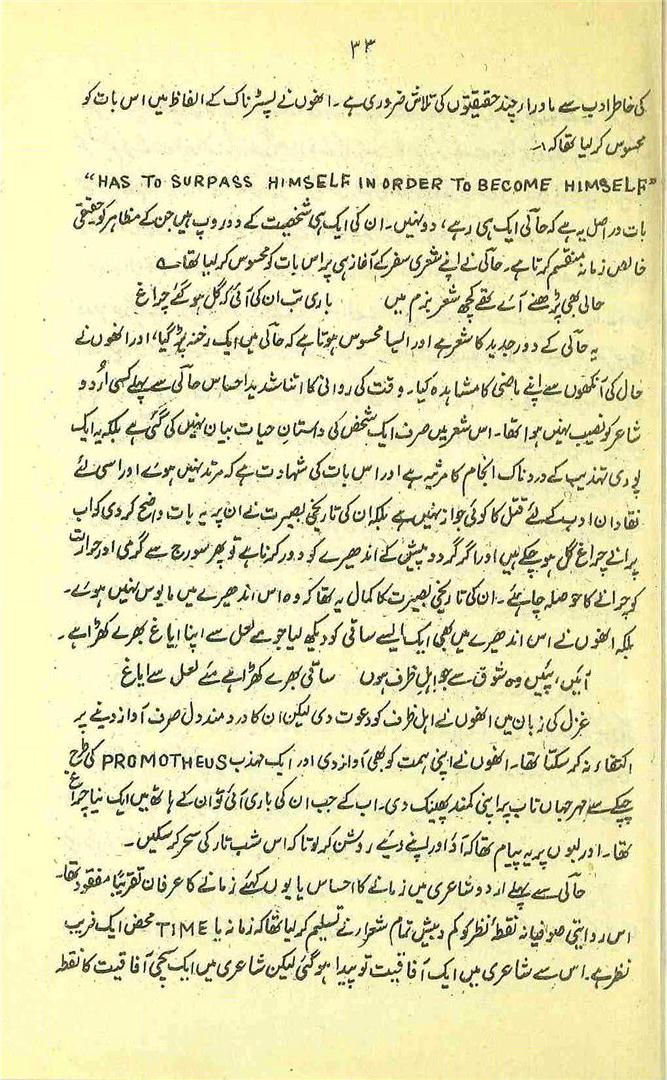 ۳۳
کی خاطر ادب سے ماورا، چند حقیقتوں کی تلاش ضروری ہے۔ انھوں نے پسٹرناک کے الفاظ میں اس بات کو
محسوس کر لیا تھا کہ:۔
“HAS TO SURPASS HIMSELF IN ORDER TO BECOME HIMSELF”
بات دراصل یہ ہے کہ حالی ایک ہی رہے، دو نہیں۔ ان کی ایک ہی شخصیت کے دو روپ ہیں جن کے مظاہر کو حقیقی
خالص زمانہ منقسم کرتا ہے۔ حالی نے اپنے شعری سفر کے آغاز ہی پر اس بات کو محسوس کر لیا تھا ے
حالی بھی پڑھنے آئے تھے کچھ شعر بزم میں باری تب ان کی آئی کہ گل ہو گئے چراغ
یہ حالی کے دور جدید کا شعر ہے اور ایسا محسوس ہوتا ہے کہ حالی میں ایک رخنہ پڑ گیا، اور انھوں نے
حال کی آنکھوں سے اپنے ماضی کا مشاہدہ کیا۔ وقت کی روانی کا اتنا شدید احساس حالی سے پہلے کسی اُردو
شاعر کو نصیب نہیں ہوا تھا۔ اس شعر میں صرف ایک شخص کی داستانِ حیات بیان نہیں کی گئی ہے بلکہ یہ ایک
پوری تہذیب کے دردناک انجام کا مرثیہ ہے اور اس بات کی شہادت ہے کہ مرتد نہیں ہوئے اور اسی لئے
نقادان ادب کے لئے قتل کا کوئی جواز نہیں ہے بلکہ ان کی تاریخی بصیرت نے ان پر یہ بات واضح کر دی کہ اب
پرانے چراغ گل ہو چکے ہیں اور اگر گرد و پیش کے اندھیرے کو دور کرنا ہے تو پھر سورج سے گرمی اور حرارت
کو چرانے کا حوصلہ چاہئے۔ ان کی تاریخی بصیرت کا کمال یہ تھا کہ وہ اس اندھیرے میں مایوس نہیں ہوئے۔
بلکہ انھوں نے اس اندھیرے میں بھی ایک ایسے ساقی کو دیکھ لیا جو مے لعل سے اپنا ایاغ بھرے کھڑا ہے۔
آئیں، پئیں وہ شوق سے جو اہل ظرف ہوں ساقی بھرے کھڑا ہے مئے لعل سے ایاغ
غزل کی زبان میں انھوں نے اہل ظرف کو دعوت دی لیکن ان کا دردمند دل صرف آواز دینے پر
اکتفاء نہ کر سکتا تھا۔ انھوں نے اپنی ہمت کو بھی آواز دی اور ایک مہذب PROMOTHEUS کی طرح
چپکے سے مہر جہاں تاب پر اپنی کمند پھینک دی۔ اب کے جب ان کی باری آئی تو ان کے ہاتھ میں ایک نیا چراغ
تھا۔ اور لبوں پر یہ پیام تھا کہ آؤ اور اپنے دیئے روشن کر لو تاکہ اس شب تار کی سحر کر سکیں۔
حالی سے پہلے اردو شاعری میں زمانے کا احساس یا یوں کہئے زمانے کا عرفان تقریباً مفقود تھا۔
اس روایتی صوفیانہ نقطۂ نظر کو کم و بیش تمام شعراء نے تسلیم کر لیا تھا کہ زمانہ یا TIME محض ایک فریب
نظر ہے۔ اس سے شاعری میں ایک آفاقیت تو پیدا ہو گئی لیکن شاعری میں ایک سچی آفاقیت کا نقطہ